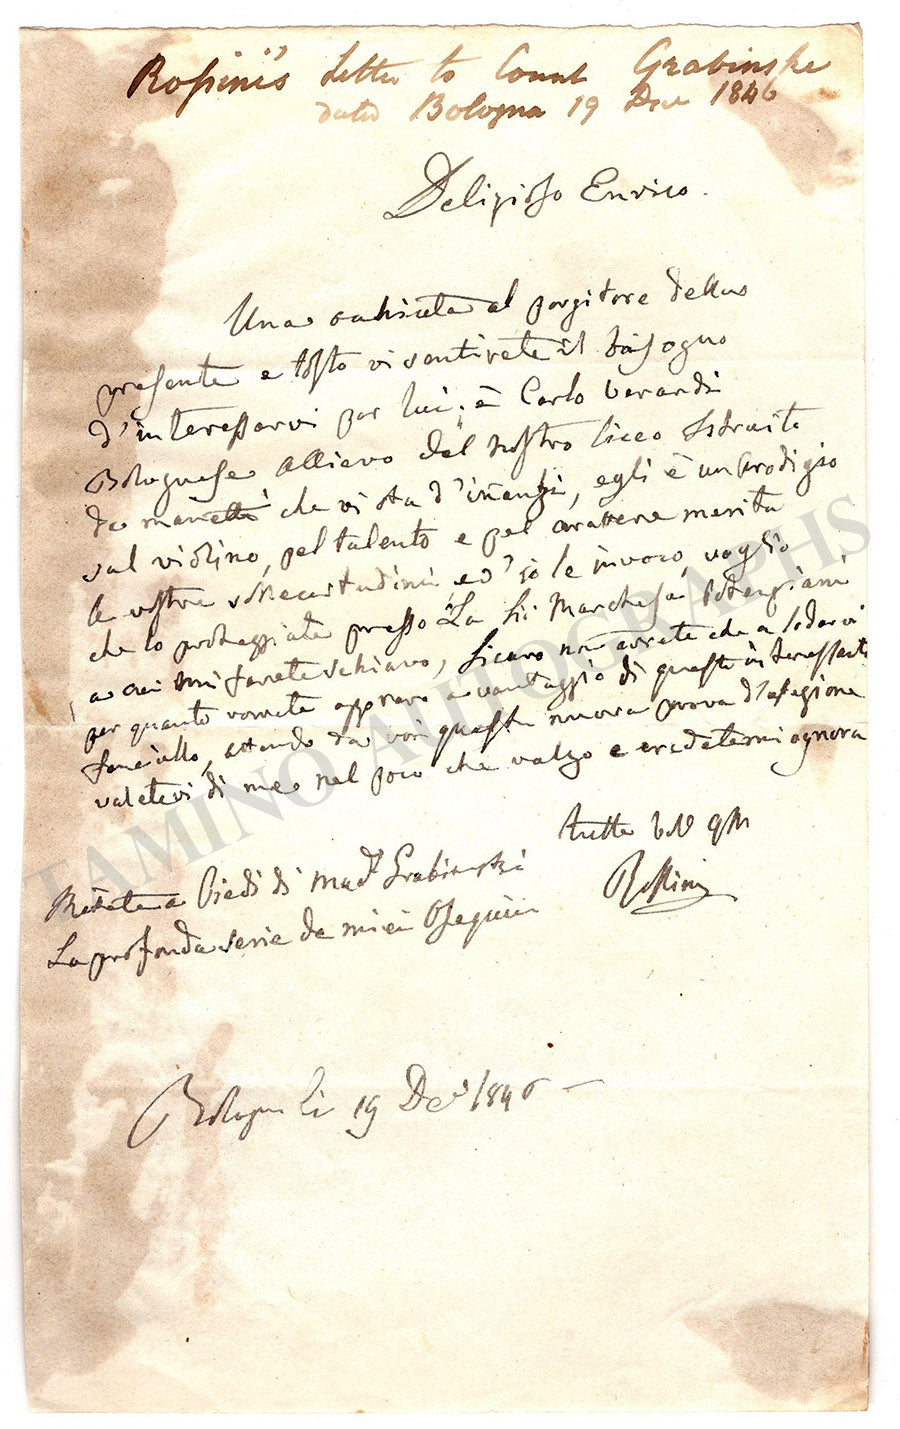 Rossini's Letter to Count Grabinski
dated Bologna 19 Dec 1846
Deligioso Enrico.
Una occhiata al porgitore della
presente e tosto vi sentirete il bisogno
d'interessarvi per lui; è Carlo Verardi
Bolognese Allievo del nostro Liceo Istruito
da che vi sta d'inanzi, egli è un Prodigio
sul violino, pel talento e pel carattere merita
le vostre sollecitudini, ed io le invoco, voglio
che lo proteggiate presso La Marchesa
a cui mi farete schiavo, sicuro non avrete che a lodarvi
per quanto vorrete oprare a vantaggio di questo interessante
fanciullo, attendo da voi questa nuova prova d'afezione
valetevi di me nel poco che valgo e credetemi ognora
tutto
Rossini
Mettete a Piedi di Mad. Grabinski
La profonda serie de miei Ossequi
Bologna Li 19 Dec 1846 –
TAMINO AUTOGRAPHS